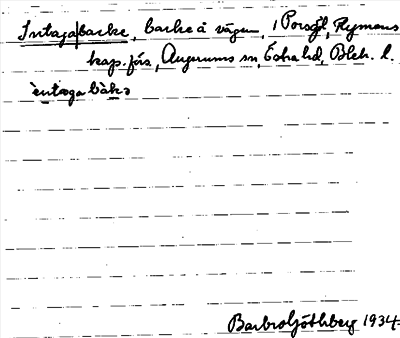 Intaga|backe, backe å vägen, i Porsgöl, Rymans
kap. förs, Augerums sn, Östra hd, Blek. l.
èntaga bàkə
Barbro Göthberg 1934